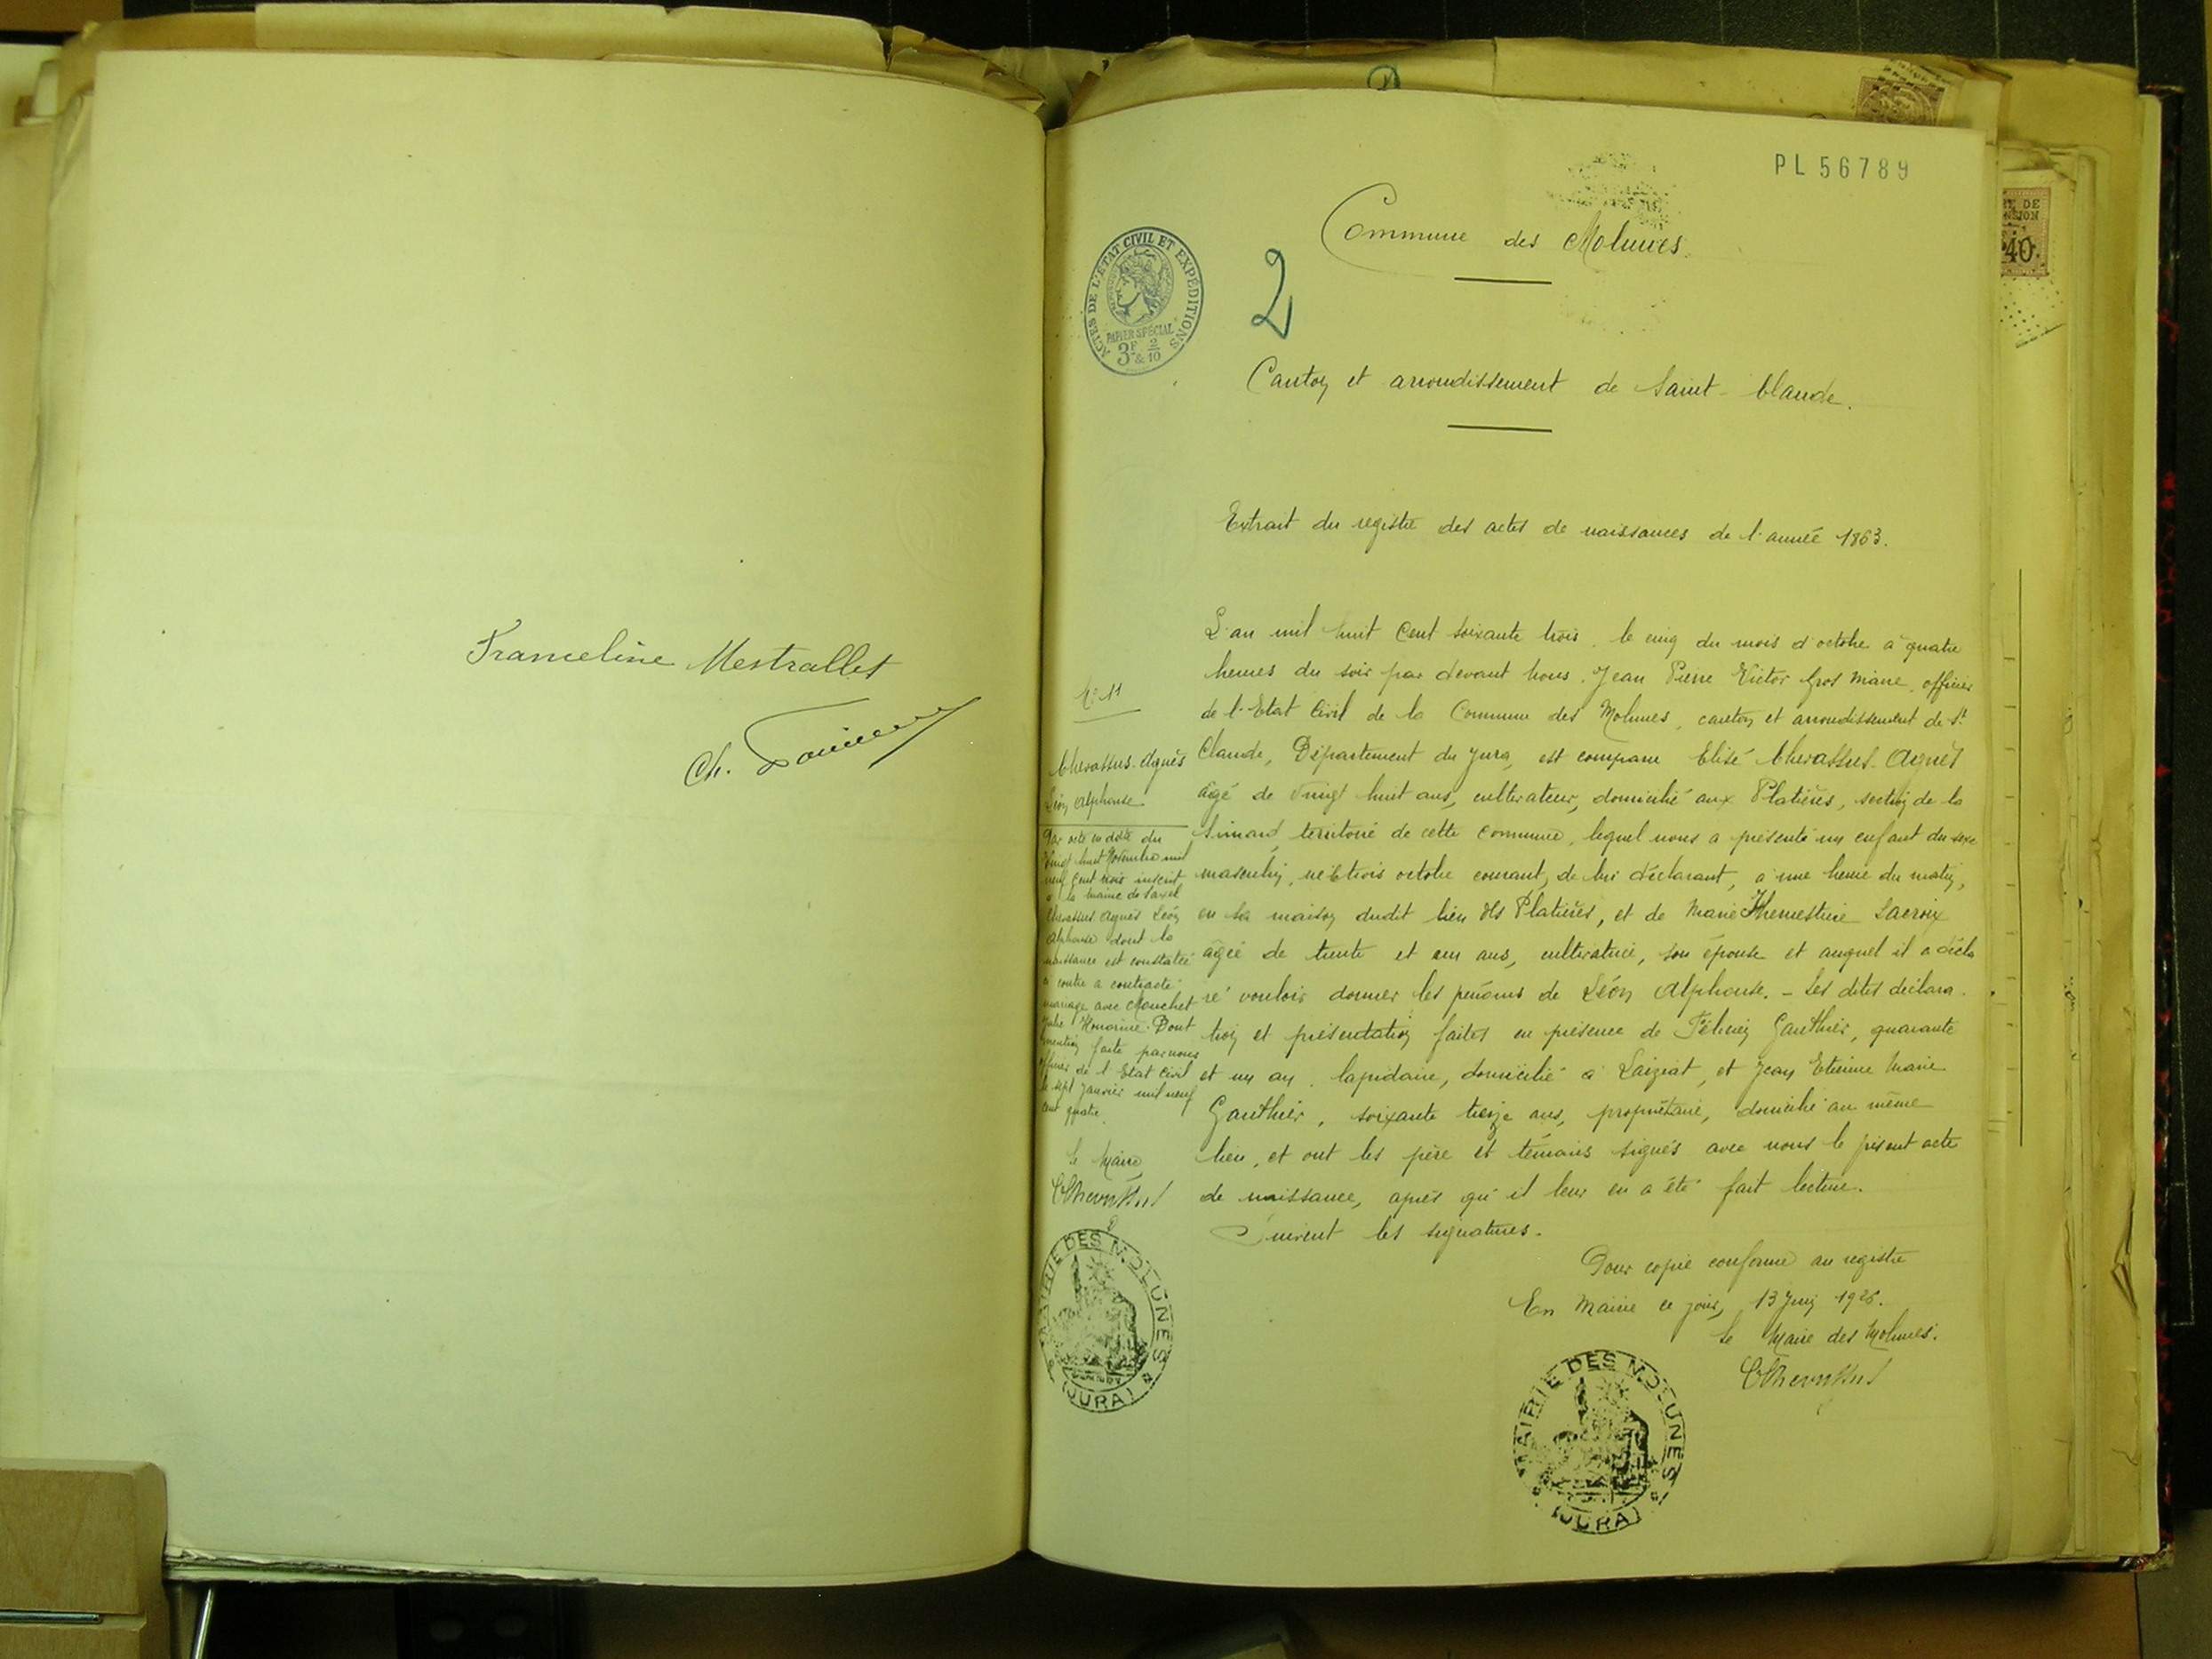 Franceline Mestrallet
Ch.
PL 56789
Commune des Molunes.
ACTES DE L'ETAT CIVIL ET EXPEDITIONS
PAPIER SPÉCIAL
3F & 2/10
2
Canton et arrondissement de Saint-Claude.
Extrait du registre des actes de naissances de l'année 1863.
L'an mil huit cent soixante trois, le cinq du mois d'octobre à quatre
heures du soir par devant Nous, Jean Pierre Victor Gros Maire, officier
de l'Etat Civil de la Commune des Molunes, canton et arrondissement de St
Claude, Département du Jura, est comparu Elisé Chevassus-Agnès
âgé de vingt huit ans, cultivateur, domicilié aux Platières, section de la
Simard, territoire de cette commune, lequel nous a présenté un enfant du sexe
masculin, né le trois octobre courant, de lui déclarant, à une heure du matin,
en sa maison dudit lieu des Platières, et de Marie Lacroix
âgée de trente et un ans, cultivatrice, son épouse et auquel il a décla
ré vouloir donner les prénoms de Léon Alphonse. - Les dites déclara
tion et présentation faites en présence de Félicien Gauthier, quarante
et un an, lapidaire, domicilié à Laiziat, et Jean Etienne Marie
Gauthier, soixante treize ans, propriétaire, domicilié au même
lieu, et ont les père et témoins signés avec nous le présent acte
de naissance, après qu'il leur en a été fait lecture.
Suivent les signatures.
Pour copie conforme au registre
En Mairie ce jour, 13 Juin 1926.
Le Maire des Molunes.
MAIRIE DES MOLUNES
(JURA)
No 11
Chevassus-Agnès
Léon Alphonse
Par acte en date du
vingt huit Novembre mil
neuf cent trois inscrit
à la mairie de Saxel
Chevassus Agnès Léon
Alphonse dont la
naissance est constatée
ci contre a contracté
mariage avec Mouchet
Julie Honorine. Dont
mention faite par nous
officier de l'Etat Civil
le sept Janvier mil neuf
cent quatre.
Le Maire
MAIRIE DES MOLUNES
(JURA)
DE
40